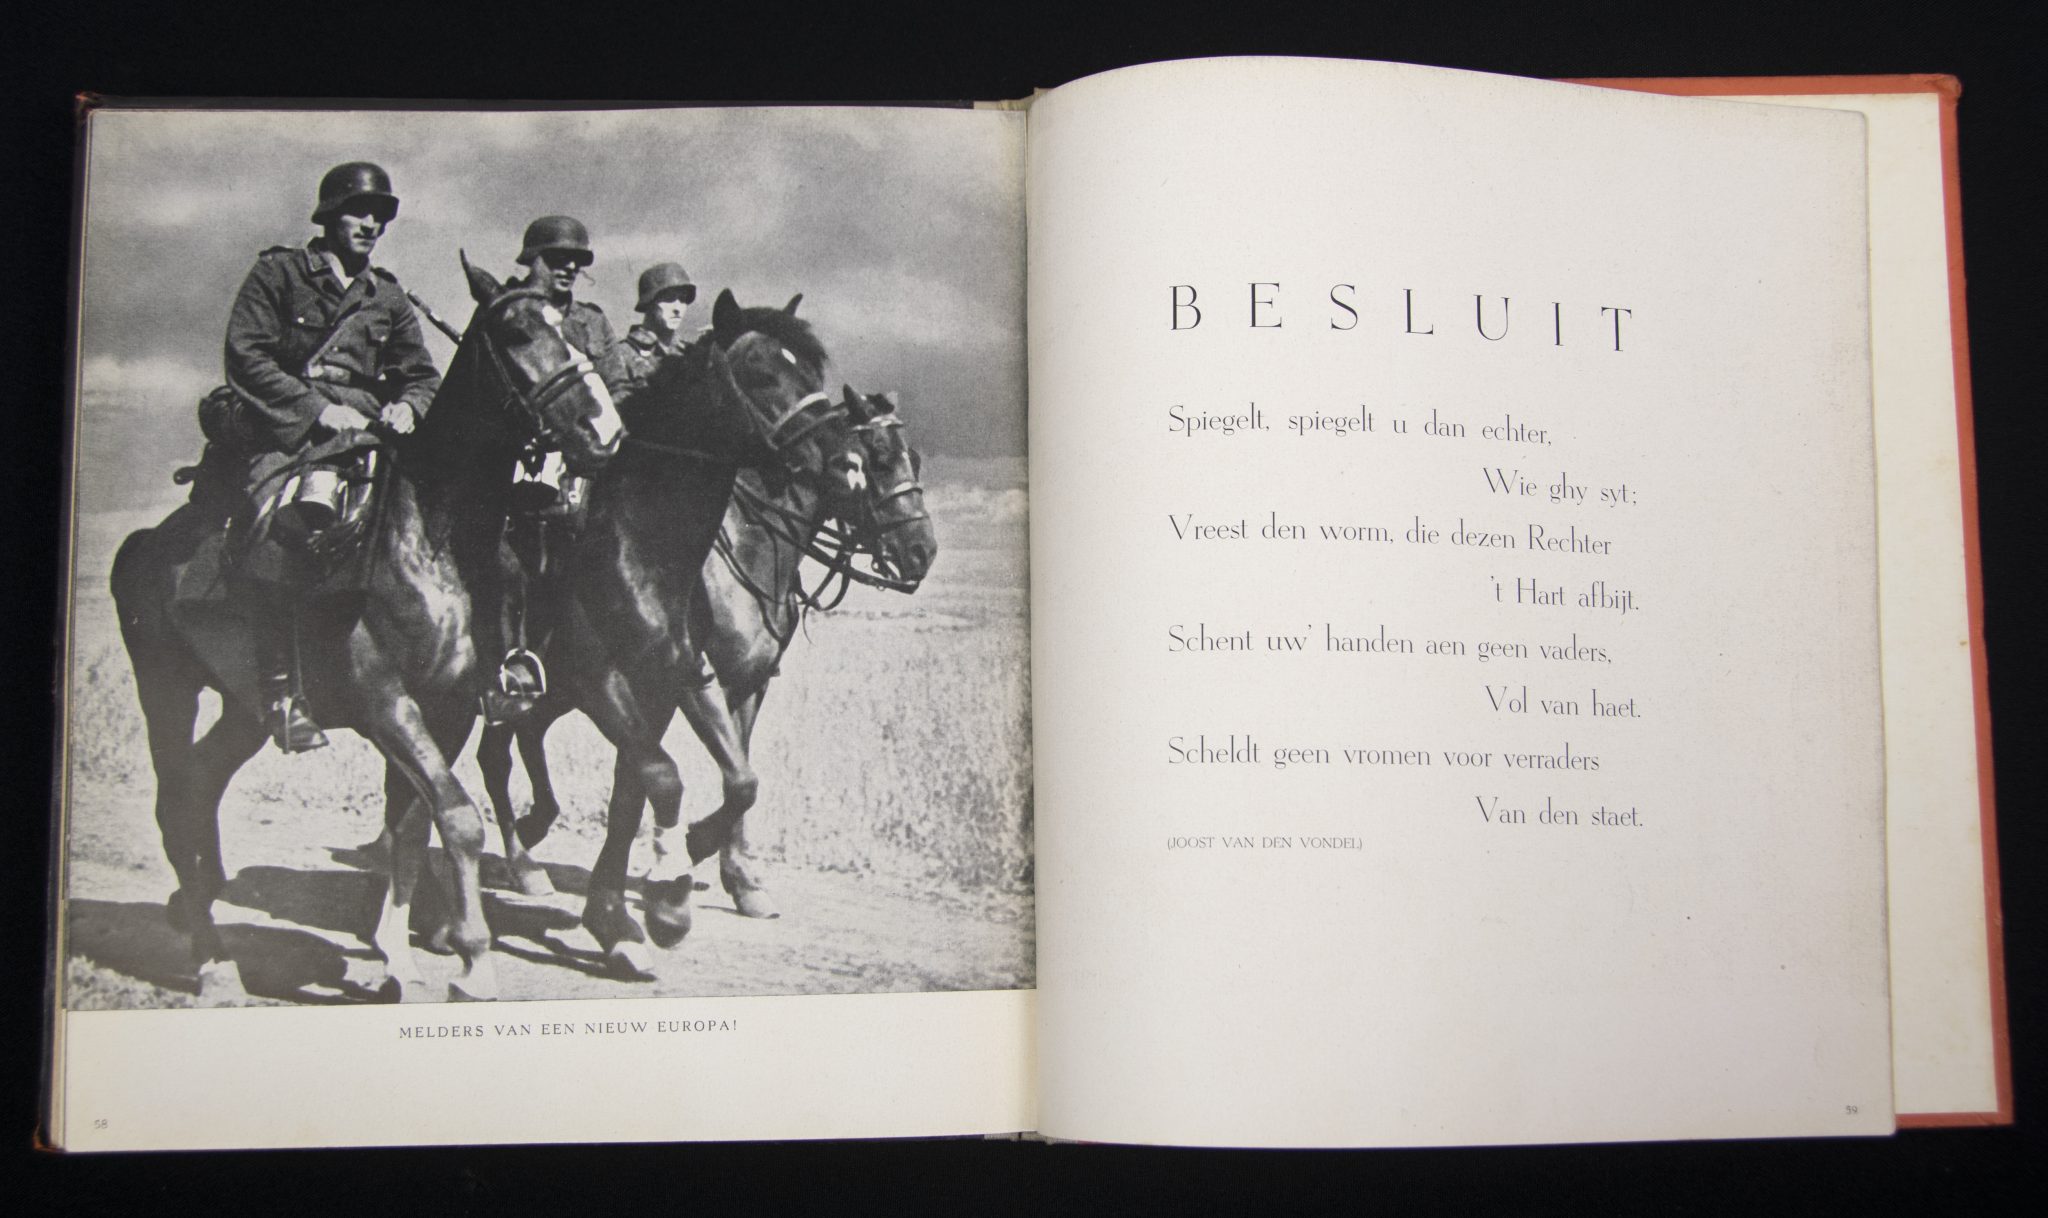 MELDERS VAN EEN NIEUW EUROPA!
58
BESLUIT
Spiegelt, spiegelt u dan echter,
Wie ghy syt;
Vreest den worm, die dezen Rechter
't Hart afbijt.
Schent uw' handen aen geen vaders,
Vol van haet.
Scheldt geen vromen voor verraders
Van den staet.
(JOOST VAN DEN VONDEL)
59